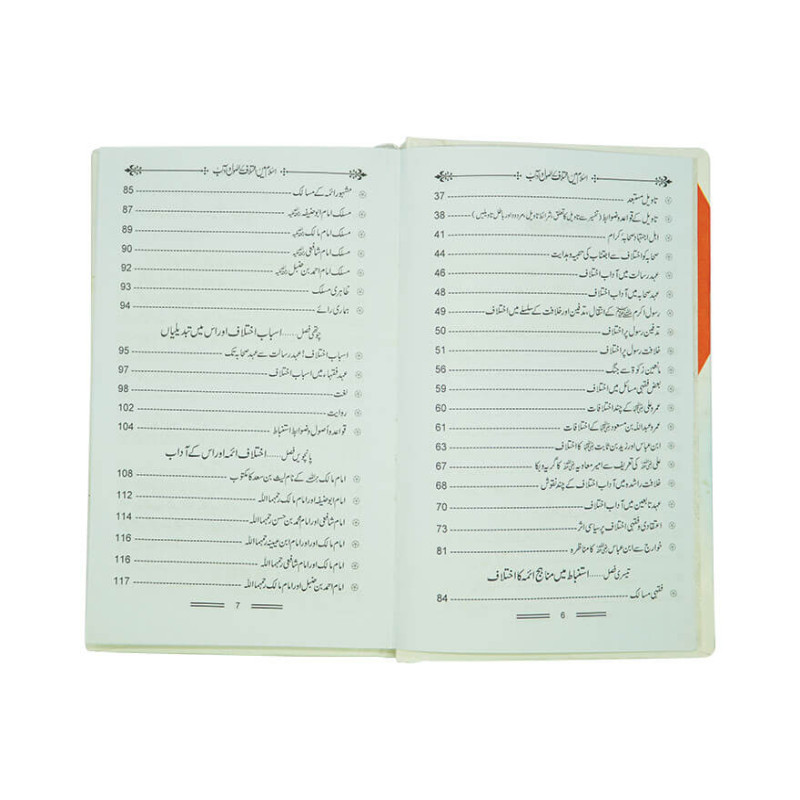 اسلام میں اختلاف کے اصول و آداب
تاویل مستبعد 37
تاویل کے قواعد و ضوابط (تفسیر سے تاویل کا تعلق، شرائط تاویل، مردود اور باطل تاویلیں) 38
اہل اجتہاد صحابہ کرام 41
صحابہ کو اختلاف سے اجتناب کی تنبیہ و ہدایت 44
عہد رسالت میں آداب اختلاف 46
عہد صحابہ میں آداب اختلاف 48
رسول اکرم ﷺ کے انتقال، تدفین اور خلافت کے سلسلے میں اختلاف 49
تدفین رسول پر اختلاف 50
خلافت رسول پر اختلاف 51
مانعین زکوٰۃ سے جنگ 56
بعض فقہی مسائل میں اختلاف 59
عمر و علی کے چند اختلافات 60
عمر و عبداللہ بن مسعود کے اختلافات 61
ابن عباس اور زید بن ثابت کا اختلاف 63
علی کی تعریف سے امیر معاویہ کا گریہ و بکا 67
خلافت راشدہ میں آداب اختلاف کے چند نقوش 68
عہد تابعین میں آداب اختلاف 70
اعتقادی و فقہی اختلاف پر سیاسی اثر 73
خوارج سے ابن عباس کا مناظرہ 81
تیسری فصل ..... استنباط میں مناہج ائمہ کا اختلاف
فقہی مسالک 84
6
اسلام میں اختلاف کے اصول و آداب
مشہور ائمہ کے مسالک 85
مسلک امام ابو حنیفہ 87
مسلک امام مالک 89
مسلک امام شافعی 90
مسلک امام احمد بن حنبل 92
ظاہری مسلک 93
ہماری رائے 94
چوتھی فصل ..... اسباب اختلاف اور اس میں تبدیلیاں
اسباب اختلاف! عہد رسالت سے عہد صحابہ تک 95
عہد فقہاء میں اسباب اختلاف 97
لغت 98
روایت 102
قواعد و اصول و ضوابط استنباط 104
پانچویں فصل ..... اختلاف ائمہ اور اس کے آداب
امام مالک کے نام لیث بن سعد کا مکتوب 108
امام ابو حنیفہ اور امام مالک رحمہما اللہ 112
امام شافعی اور امام محمد بن حسن رحمہما اللہ 114
امام مالک اور امام ابن عیینہ رحمہما اللہ 116
امام مالک اور امام شافعی رحمہما اللہ 116
امام احمد بن حنبل اور امام مالک رحمہما اللہ 117
7